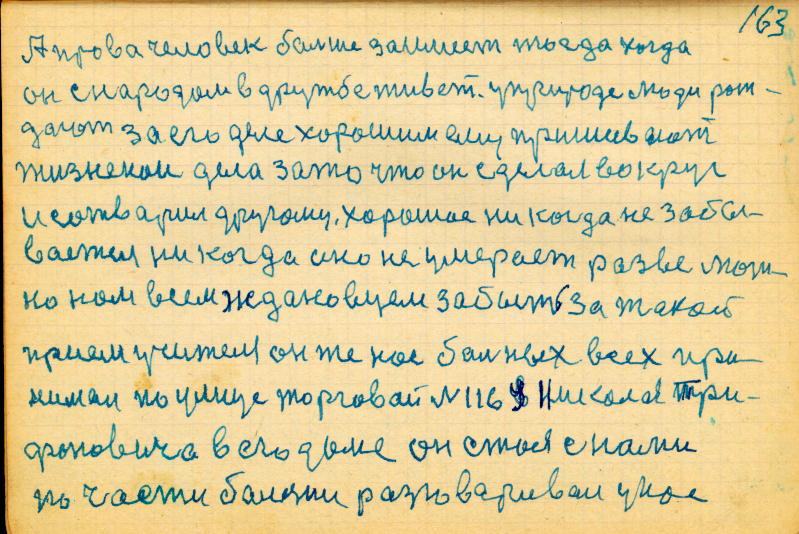 163
А права человек болше заимеет тогда когда
он с народом в дружбе живет. у природе люди рож-
дают за его дела хорошим ему пришивают
жизнекои дела за то что он сделал вокруг
и сотварил другому, хорошое никогда не забы-
вается никогда оно не умерает разве мож-
но нам всем ждановцем забыть за такой
прием учителя он же нас болных всех при-
нимал по улице торговай N 116 У Николая Три-
фоновича в его доме он стоя с нами
по части болязни разговаривал у нас